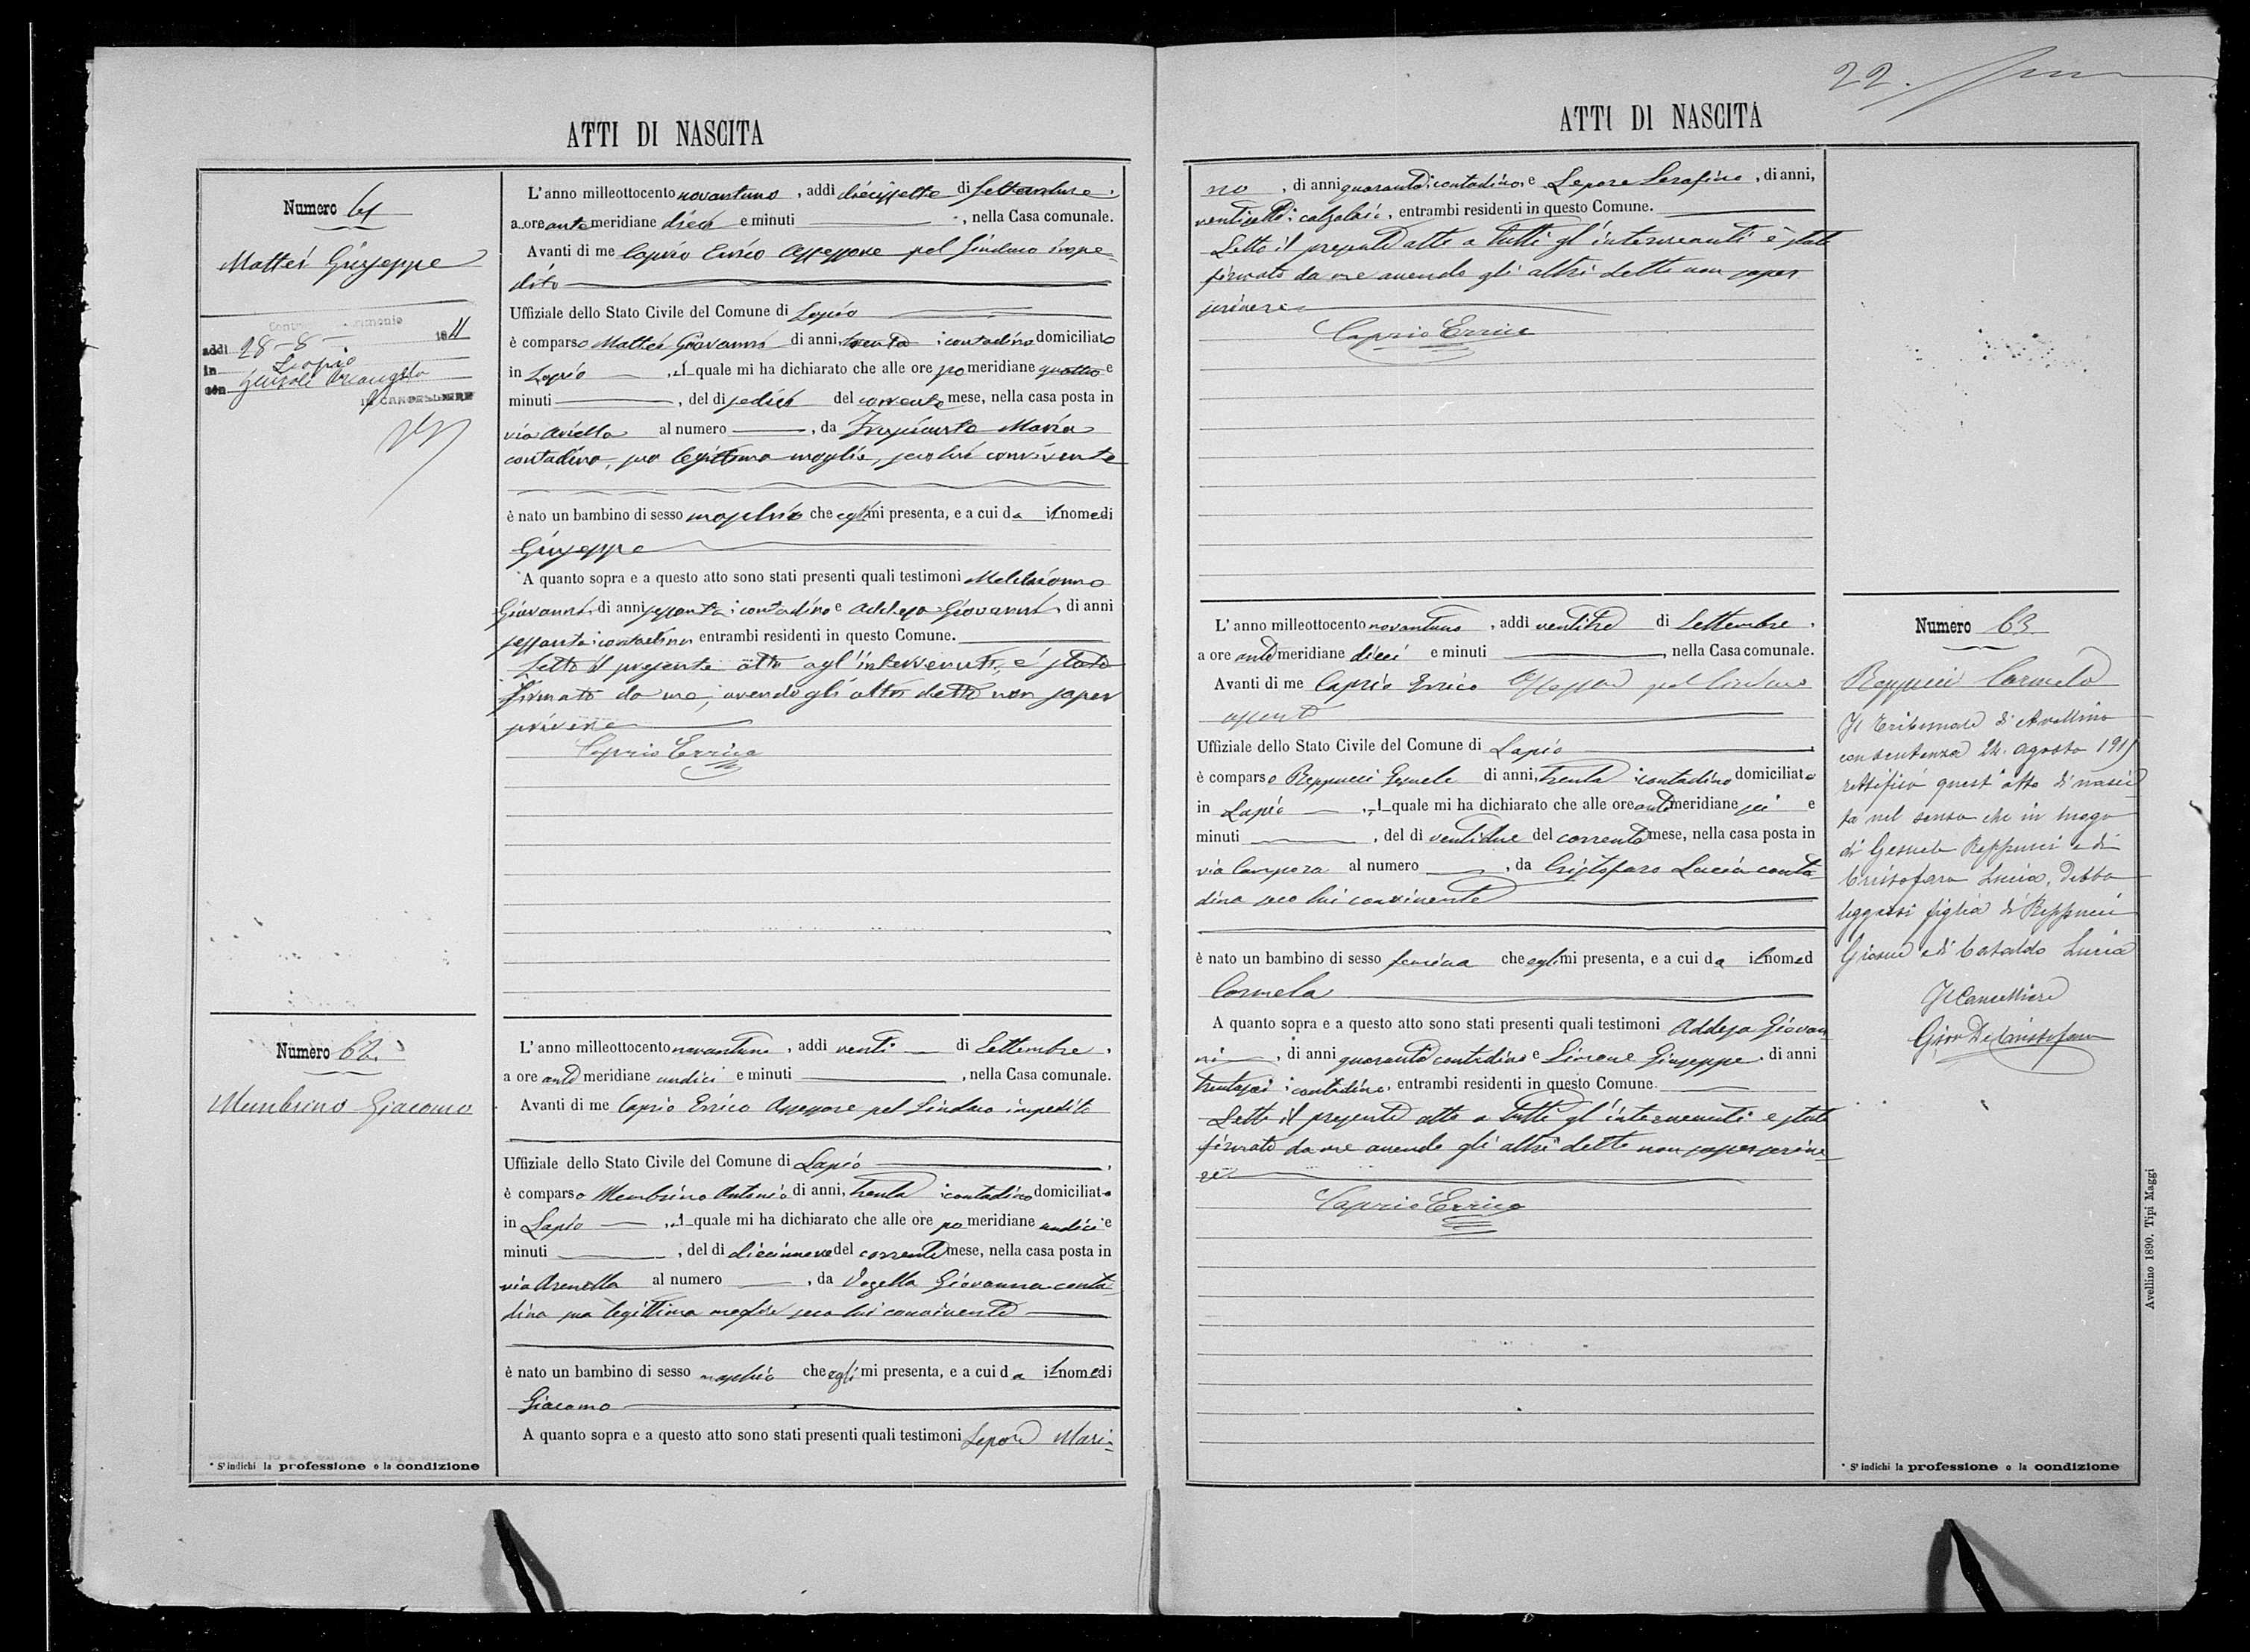 22.
ATTI DI NASCITA
Numero 61
Mattei Giuseppe
Contr matrimonio
addì 28-8- 1911
in Lapio
con Arcangela
IL CANCELLIERE
L'anno milleottocento novantuno, addì diecissette di Settembre,
a ore ante meridiane dieci e minuti ———, nella Casa comunale.
Avanti di me Caprio Enrico Assessore pel Sindaco impe-
dito
Uffiziale dello Stato Civile del Comune di Lapio
è comparso Mattei Giovanni di anni, trenta contadino domiciliato
in Lapio ——, il quale mi ha dichiarato che alle ore po meridiane quattro e
minuti ———, del dì sedici del corrente mese, nella casa posta in
via Ariella al numero ——, da Maria
contadina, sua legittima moglie, seco lui convivente
è nato un bambino di sesso maschio che egli mi presenta, e a cui da il nome di
Giuseppe
A quanto sopra e a questo atto sono stati presenti quali testimoni
Giovanni, di anni sessanta contadino e Addesa Giovanni, di anni
sessanta contadino entrambi residenti in questo Comune.
Letto il presente atto agl'intervenuti, è stato
firmato da me, avendo gli altri detto non saper
scrivere
Caprio Errico
Numero 62.
Membrino Giacomo
L'anno milleottocento novantuno, addì venti — di Settembre,
a ore ante meridiane undici e minuti ———, nella Casa comunale.
Avanti di me Caprio Enrico Assessore pel Sindaco impedito
Uffiziale dello Stato Civile del Comune di Lapio
è comparso Membrino Antonio di anni, trenta contadino domiciliato
in Lapio ——, il quale mi ha dichiarato che alle ore po meridiane undici e
minuti ———, del dì diecinnove del corrente mese, nella casa posta in
via Arenella al numero ——, da Vozella Giovanna conta-
dina sua legittima moglie seco lui convivente
è nato un bambino di sesso maschio che egli mi presenta, e a cui da il nome di
Giacomo
A quanto sopra e a questo atto sono stati presenti quali testimoni Lepore Mari-
* S'indichi la professione o la condizione
ATTI DI NASCITA
no, di anni quaranta contadino, e Lepore Serafino, di anni,
ventisette calzolaio, entrambi residenti in questo Comune.
Letto il presente atto a tutti gl'intervenuti è stato
firmato da me avendo gli altri detto non saper
scrivere
Caprio Errico
L'anno milleottocento novantuno, addì ventitre di Settembre,
a ore ante meridiane dieci e minuti ———, nella Casa comunale.
Avanti di me Caprio Enrico Assessore pel Sindaco
assente
Uffiziale dello Stato Civile del Comune di Lapio
è comparso Reppucci Gesuele di anni, trenta contadino domiciliato
in Lapio ——, il quale mi ha dichiarato che alle ore ante meridiane sei e
minuti ———, del dì ventidue del corrente mese, nella casa posta in
via Campora al numero ——, da Cristofaro Lucia conta-
dina seco lui convivente
è nato un bambino di sesso femina che egli mi presenta, e a cui da il nome d
Carmela
A quanto sopra e a questo atto sono stati presenti quali testimoni Addesa Giovan-
ni, di anni quaranta contadino e Simone Giuseppe, di anni
trentasei contadino, entrambi residenti in questo Comune.
Letto il presente atto a tutti gl'intervenuti è stato
firmato da me avendo gli altri detto non saper scrive-
re
Caprio Errico
Numero 63
Reppucci Carmela
Il Tribunale di Avellino
con sentenza 24 agosto 191
rettificò quest'atto di nasci-
ta nel senso che in luogo
di Gesuele Reppucci e di
Cristofaro Lucia, debba
leggersi figlia di Reppucci
Giosuè e di Cataldo Lucia
Il Cancelliere
Giov De Cristofaro
* S'indichi la professione o la condizione
Avellino 1890. Tipi Maggi